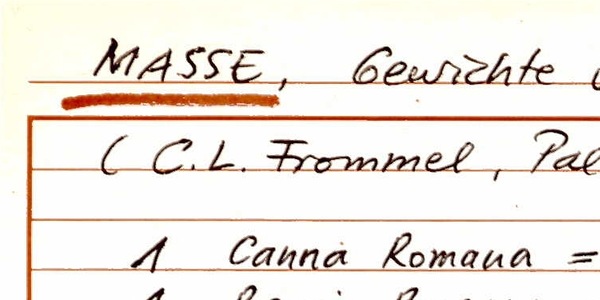 MASSE, Gewichte
( C.L. Frommel, Pal
1 Canna Romana =